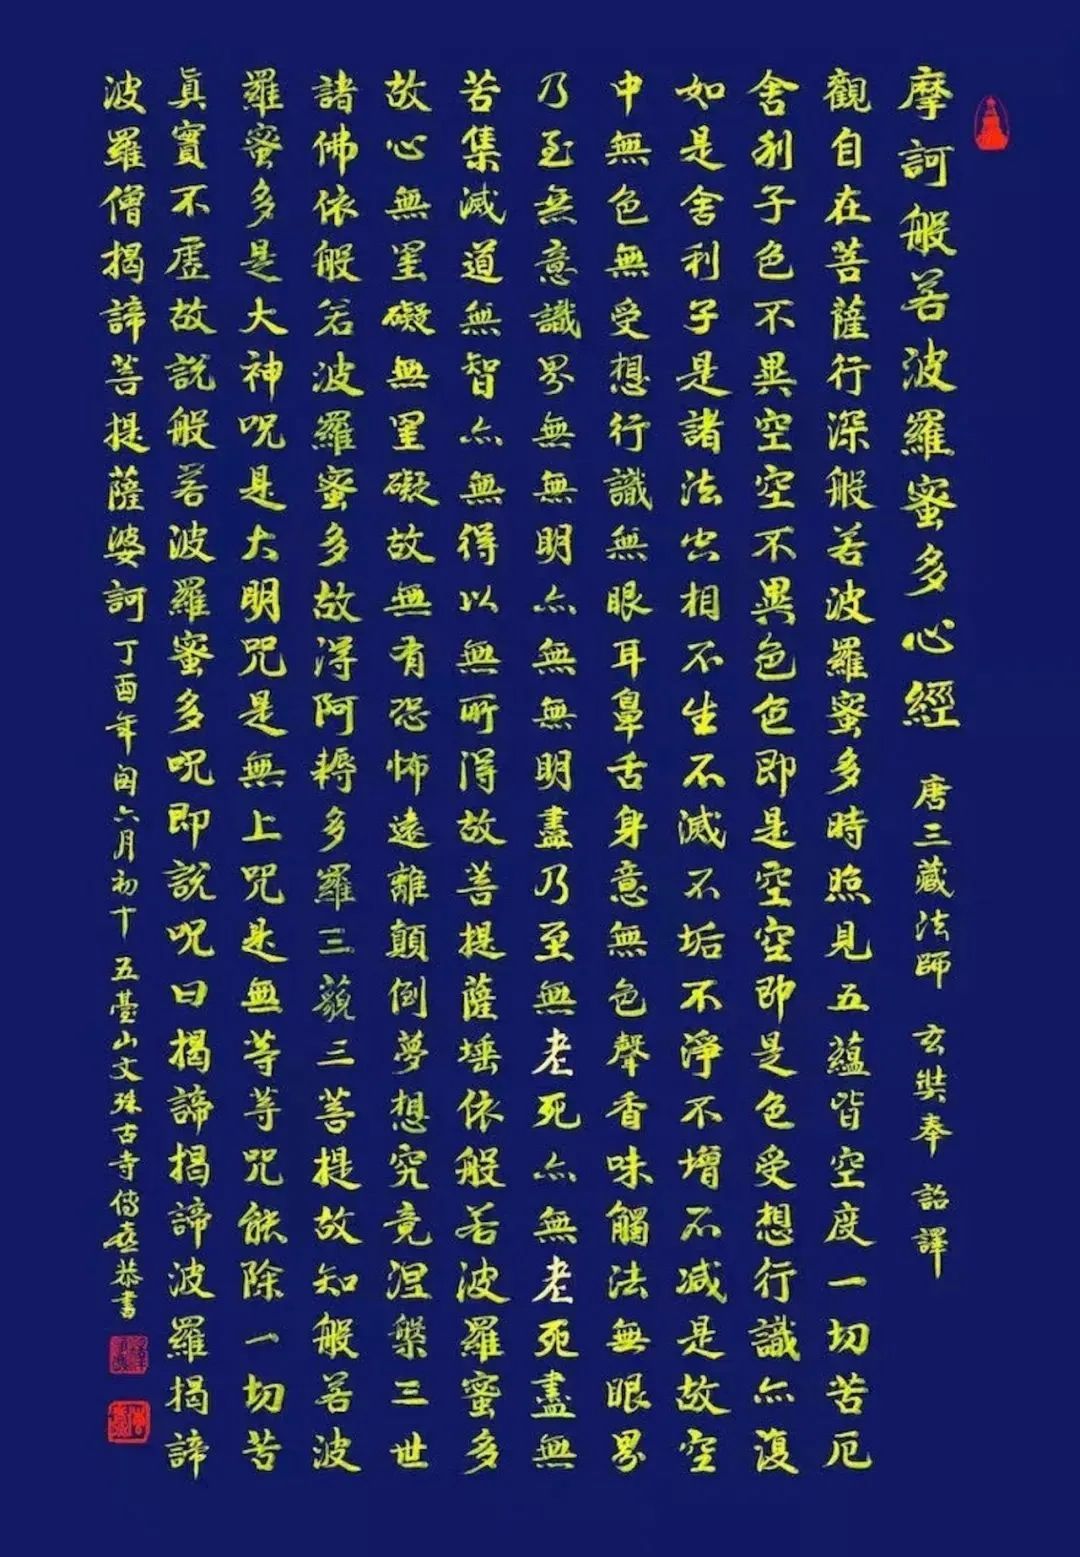 摩訶般若波羅蜜多心經 唐三藏法師 玄奘奉 詔譯
觀自在菩薩行深般若波羅蜜多時照見五蘊皆空度一切苦厄
舍利子色不異空空不異色色即是空空即是色受想行識亦復
如是舍利子是諸法空相不生不滅不垢不淨不增不減是故空
中無色無受想行識無眼耳鼻舌身意無色聲香味觸法無眼界
乃至無意識界無無明亦無無明盡乃至無老死亦無老死盡無
苦集滅道無智亦無得以無所得故菩提薩埵依般若波羅蜜多
故心無罣礙無罣礙故無有恐怖遠離顛倒夢想究竟涅槃三世
諸佛依般若波羅蜜多故得阿耨多羅三藐三菩提故知般若波
羅蜜多是大神咒是大明咒是無上咒是無等等咒能除一切苦
真實不虛故說般若波羅蜜多咒即說咒曰揭諦揭諦波羅揭諦
波羅僧揭諦菩提薩婆訶 丁酉年閏六月初十 五臺山文殊古寺傳意恭書